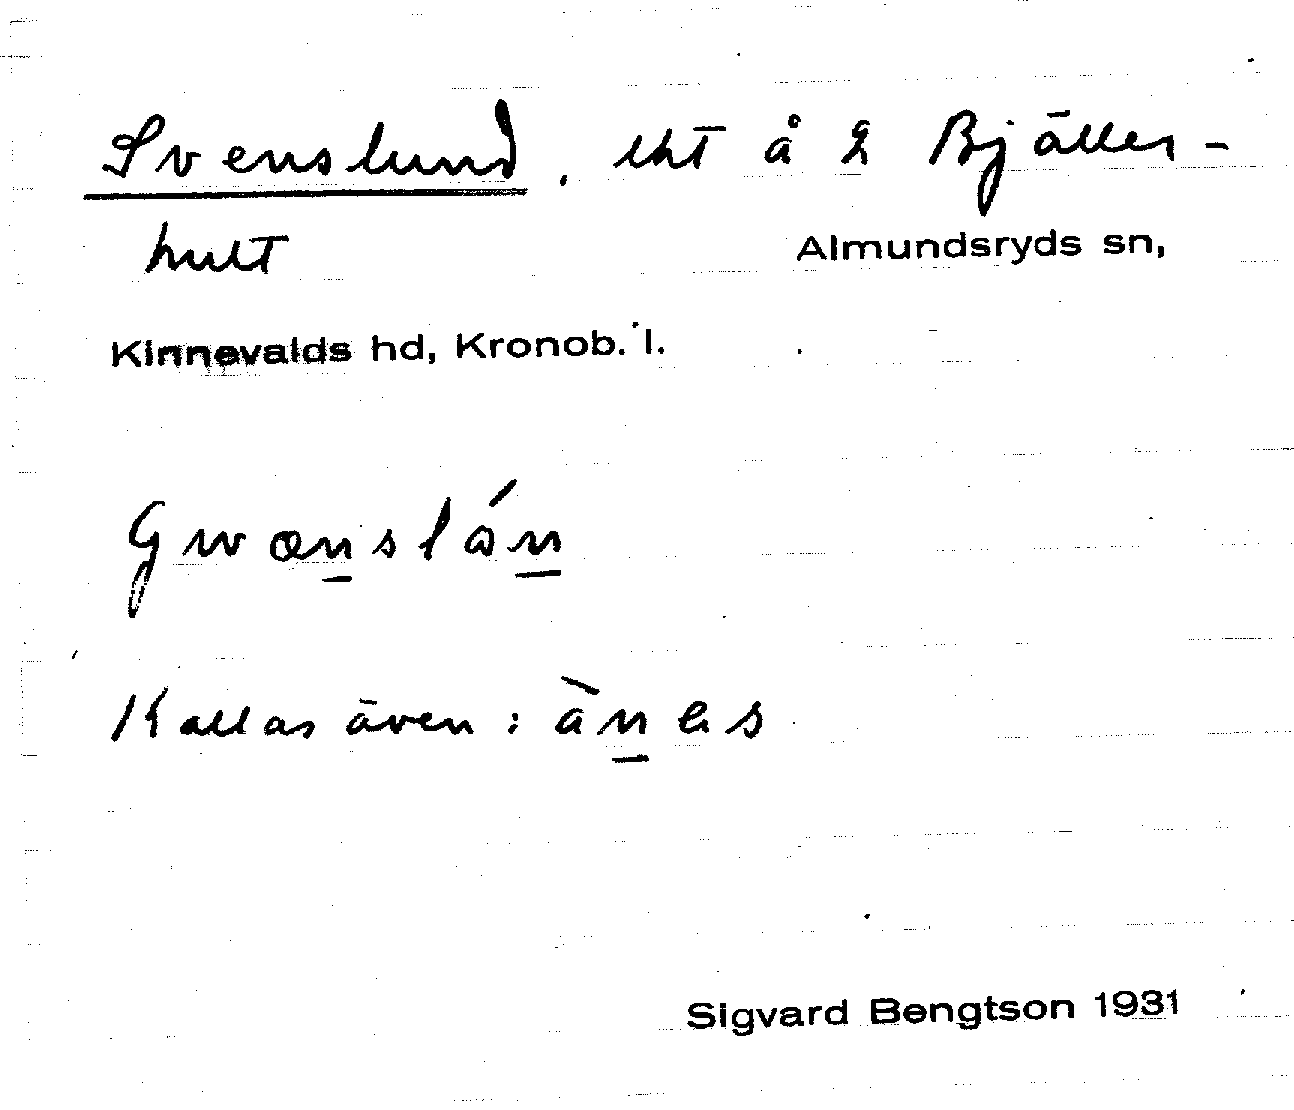 Svenslund, lht å 2 Bjäller-
hult
Almundsryds sn,
Kinnevalds hd, Kronob. l.
Kallas även:
Sigvard Bengtson 1931